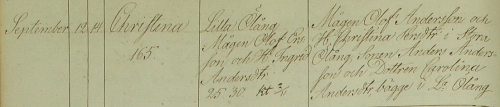 September 12. 14. Christina
165
Lilla Ölång
Mågen Olof
son och H. Ingrid
Andersdtr
25. 30
Mågen Olof Andersson och
H. Christina i Stora
Ölång, Sonen Anders Anders
son och Dottren Carolina
Andersdtr, bägge i L: Ölång